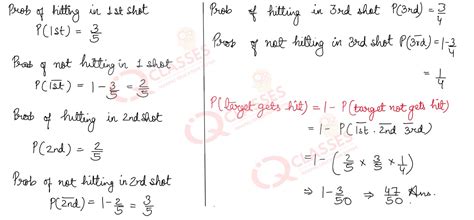 Prob of hitting in 1st shot
P(1st) = 3/5
Prob of not hitting in 1 shot
P(1̅s̅t̅) = 1 - 3/5 = 2/5
Prob of hitting in 2nd shot
P(2nd) = 2/5
Prob of not hitting in 2nd shot
P(2̅n̅d̅) = 1 - 2/5 = 3/5
Prob of hitting in 3rd shot P(3rd) = 3/4
Prob of not hitting in 3rd shot P(3̅r̅d̅) = 1 - 3/4
= 1/4
P(target gets hit) = 1 - P(target not gets hit)
= 1 - P(1̅s̅t̅ . 2̅n̅d̅ 3̅r̅d̅)
= 1 - (2/5 × 3/5 × 1/4)
⇒ 1 - 3/50 ⇒ 47/50 Ans.
IQ CLASSES
IQ CLASSES